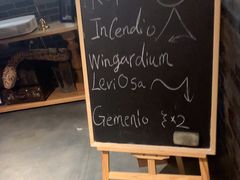 Incendio
Wingardium
Leviosa
Gemenio }x2